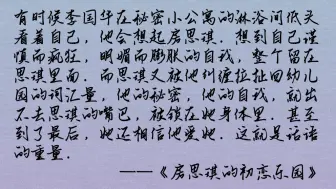 有时候李国华在秘密小公寓的淋浴间低头
看着自己，他会想起房思琪．想到自己谨
慎而疯狂，明媚而膨胀的自我，整个留在
思琪里面．而思琪又被他纠缠拉扯回幼儿
园的词汇量，他的秘密，他的自我，就出
不去思琪的嘴巴，被锁在她身体里．甚至
到了最后，她还相信他爱她．这就是话语
的重量．
——《房思琪的初恋乐园》